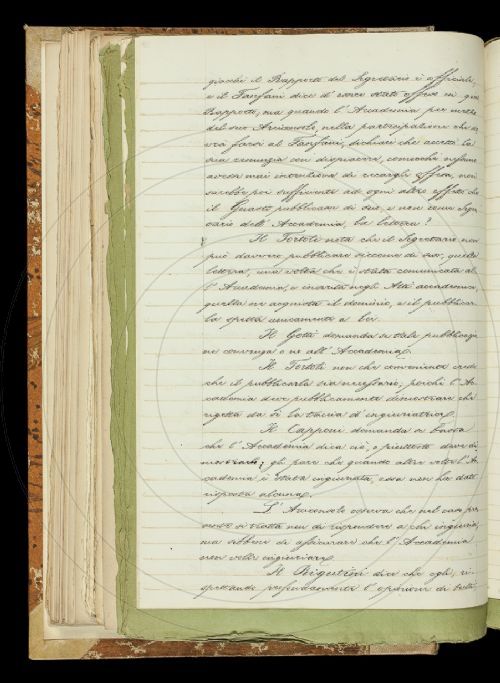 giacchè il Rapporto del Segretario è officiale
e il Fanfani dice d'esser stato offeso in quel
Rapporto, ma quando l'Accademia per mezzo
del suo Arciconsolo, nella partecipazione che do-
vrà farsi al Fanfani, dichiari che accetta la
sua renunzia con dispiacere, comecchè nessuno
avesse mai intenzione di recargli offesa, non
sarebbe poi sufficiente ad ogni altro effetto che
il Guasti pubblicasse di suo, e non come Segre-
tario dell'Accademia, la lettera?
Il Tortoli nota che il Segretario non
può davvero pubblicare siccome di suo, questa
lettera, una volta che è stata comunicata al-
l'Accademia, e inserita negli Atti accademici,
quella ne acquista il dominio, e il pubblicar-
la spetta unicamente a lei.
Il Gotti domanda se tale pubblicazio-
ne convenga o no all'Accademia.
Il Tortoli non che conveniente crede
che il pubblicarla sia necessario; perchè l'Ac-
cademia deve pubblicamente dimostrare che
rigetta da sè la taccia d'ingiuriatrice.
Il Capponi domanda se basta
che l'Accademia dica ciò, o piuttosto deve di-
mostrarlo; gli pare che quando altre volte l'Ac-
cademia è stata ingiuriata, essa non ha dato
risposta alcuna.
L'Arciconsolo osserva che nel caso pre-
sente si tratta non di rispondere a chi ingiuria,
ma sibbene di assicurare che l'Accademia
non volle ingiuriare.
Il Rigutini dice che egli, ri-
spettando profondamente l'opinione di tutti,